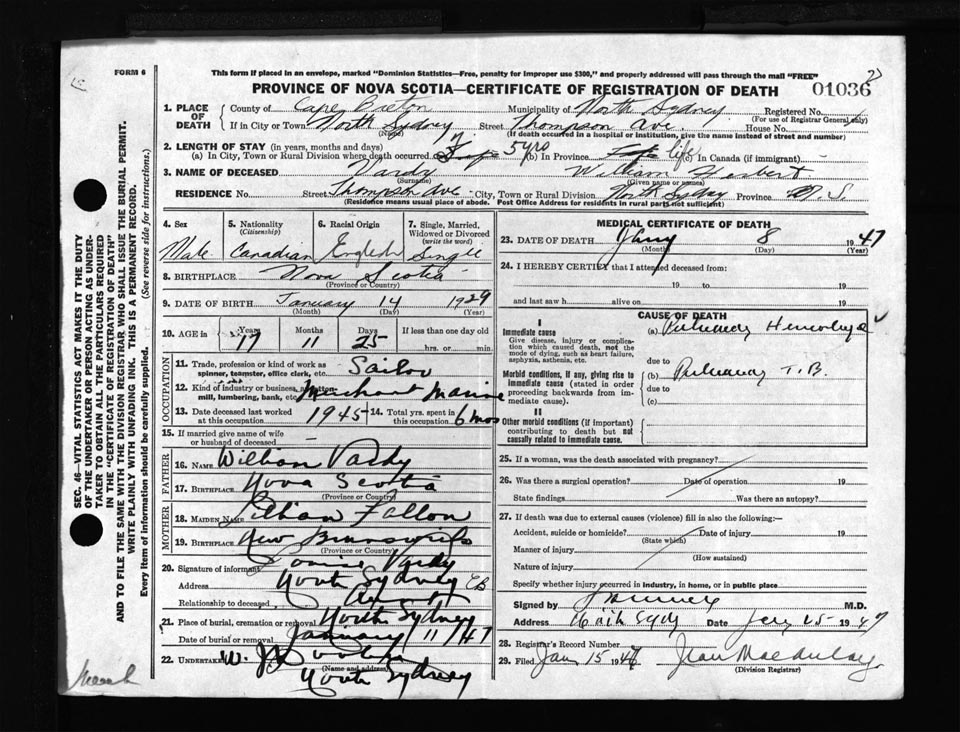 FORM 6
This form if placed in an envelope, marked "Dominion Statistics—Free, penalty for improper use $300," and properly addressed will pass through the mail "FREE"
PROVINCE OF NOVA SCOTIA—CERTIFICATE OF REGISTRATION OF DEATH 01036
1. PLACE OF DEATH County of Cape Breton Municipality of North Sydney Registered No.
(For use of Registrar General only)
If in City or Town North Sydney Street Thompson Ave. House No.
(Name) (If death occurred in a hospital or institution, give the name instead of street and number)
2. LENGTH OF STAY (in years, months and days)
(a) In City, Town or Rural Division where death occurred 5 yrs (b) In Province life (c) In Canada (if immigrant)
3. NAME OF DECEASED Vardy William Herbert
(Surname) (Given name or names)
RESIDENCE No. Street Thompson Ave City, Town or Rural Division North Sydney Province N. S.
(Residence means usual place of abode. Post Office Address for residents in rural parts not sufficient)
4. Sex 5. Nationality (Citizenship) 6. Racial Origin 7. Single, Married, Widowed or Divorced (write the word)
Male Canadian English Single
8. BIRTHPLACE Nova Scotia
(Province or Country)
9. DATE OF BIRTH January 14 1929
(Month) (Day) (Year)
10. AGE in Years Months Days If less than one day old
17 11 25 hrs. or min.
OCCUPATION
11. Trade, profession or kind of work as spinner, teamster, office clerk, etc. Sailor
12. Kind of industry or business, as cotton mill, lumbering, bank, etc. Merchant Marine
13. Date deceased last worked at this occupation 1945 14. Total yrs. spent in this occupation 6 mos
15. If married give name of wife or husband of deceased
FATHER
16. NAME William Vardy
17. BIRTHPLACE Nova Scotia
(Province or Country)
MOTHER
18. MAIDEN NAME Lillian Fallon
19. BIRTHPLACE New Brunswick
(Province or Country)
20. Signature of informant Vardy
Address North Sydney CB
Relationship to deceased
21. Place of burial, cremation or removal North Sydney
Date of burial or removal January 11/47
22. UNDERTAKER W. J.
(Name and address)
North Sydney
MEDICAL CERTIFICATE OF DEATH
23. DATE OF DEATH Jany 8 1947
(Month) (Day) (Year)
24. I HEREBY CERTIFY that I attended deceased from:
19 to 19
and last saw h alive on 19
CAUSE OF DEATH
I
Immediate cause (a) Pulmonary Hemorrhage
Give disease, injury or complication which caused death, not the mode of dying, such as heart failure, asphyxia, asthenia, etc.
due to
Morbid conditions, if any, giving rise to immediate cause (stated in order proceeding backwards from immediate cause). (b) Pulmonary T.B.
due to
(c)
II
Other morbid conditions (if important) contributing to death but not causally related to immediate cause.
25. If a woman, was the death associated with pregnancy?
26. Was there a surgical operation? Date of operation 19
State findings Was there an autopsy?
27. If death was due to external causes (violence) fill in also the following:—
Accident, suicide or homicide? Date of injury 19
(State which)
Manner of injury
(How sustained)
Nature of injury
Specify whether injury occurred in industry, in home, or in public place
Signed by M.D.
Address North Sydney Date Jany 15 1947
28. Registrar's Record Number
29. Filed Jan 15 1947 Jean
(Division Registrar)
SEC. 46—VITAL STATISTICS ACT MAKES IT THE DUTY
OF THE UNDERTAKER OR PERSON ACTING AS UNDERTAKER TO OBTAIN ALL THE PARTICULARS REQUIRED
IN THE "CERTIFICATE OF REGISTRATION OF DEATH"
AND TO FILE THE SAME WITH THE DIVISION REGISTRAR WHO SHALL ISSUE THE BURIAL PERMIT.
WRITE PLAINLY WITH UNFADING INK. THIS IS A PERMANENT RECORD.
Every item of information should be carefully supplied. (See reverse side for instructions.)